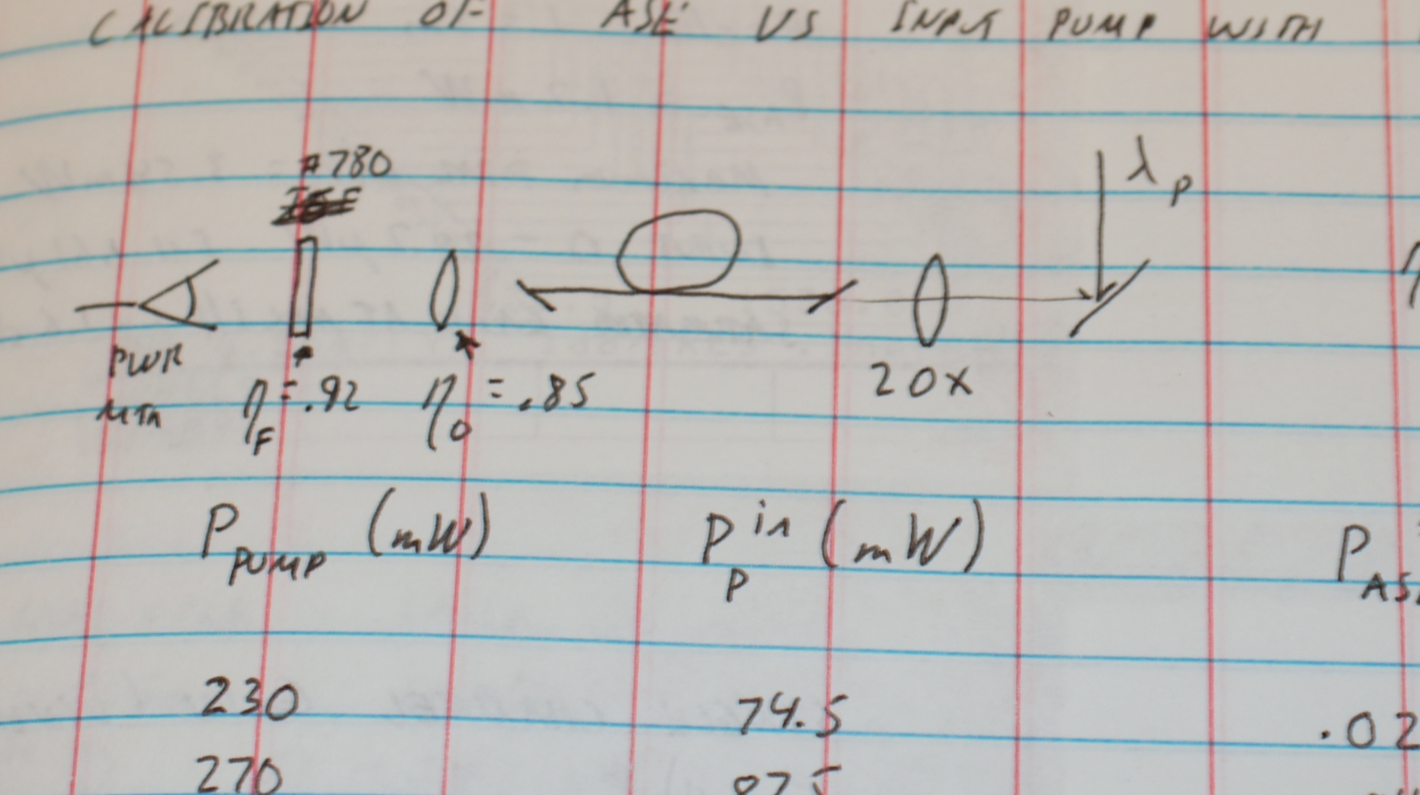 CALIBRATION OF ASE VS INPUT PUMP WITH
λp
780
PWR
MTR
ηF = .92
ηo = .85
20x
P PUMP (mW)
P p in (mW)
P AS
230
74.5
.02
270